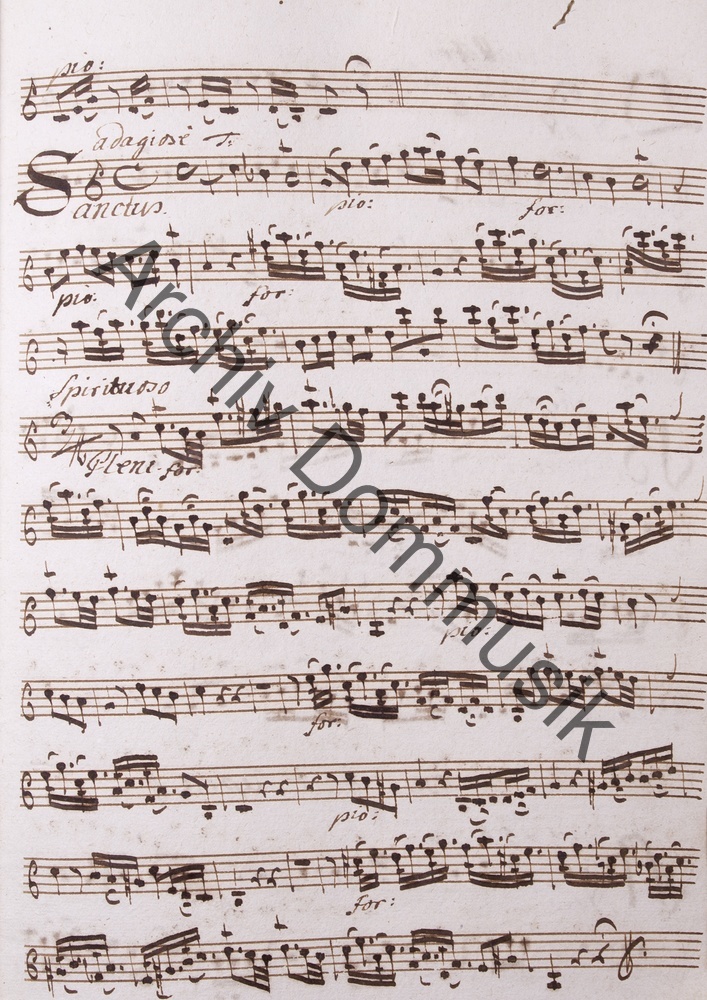 pio:
adagiosè T:
Sanctus.
pio: for:
pio: for:
Spirituoso
Pleni for:
pio:
for:
pio:
for:
Archiv Dommusik